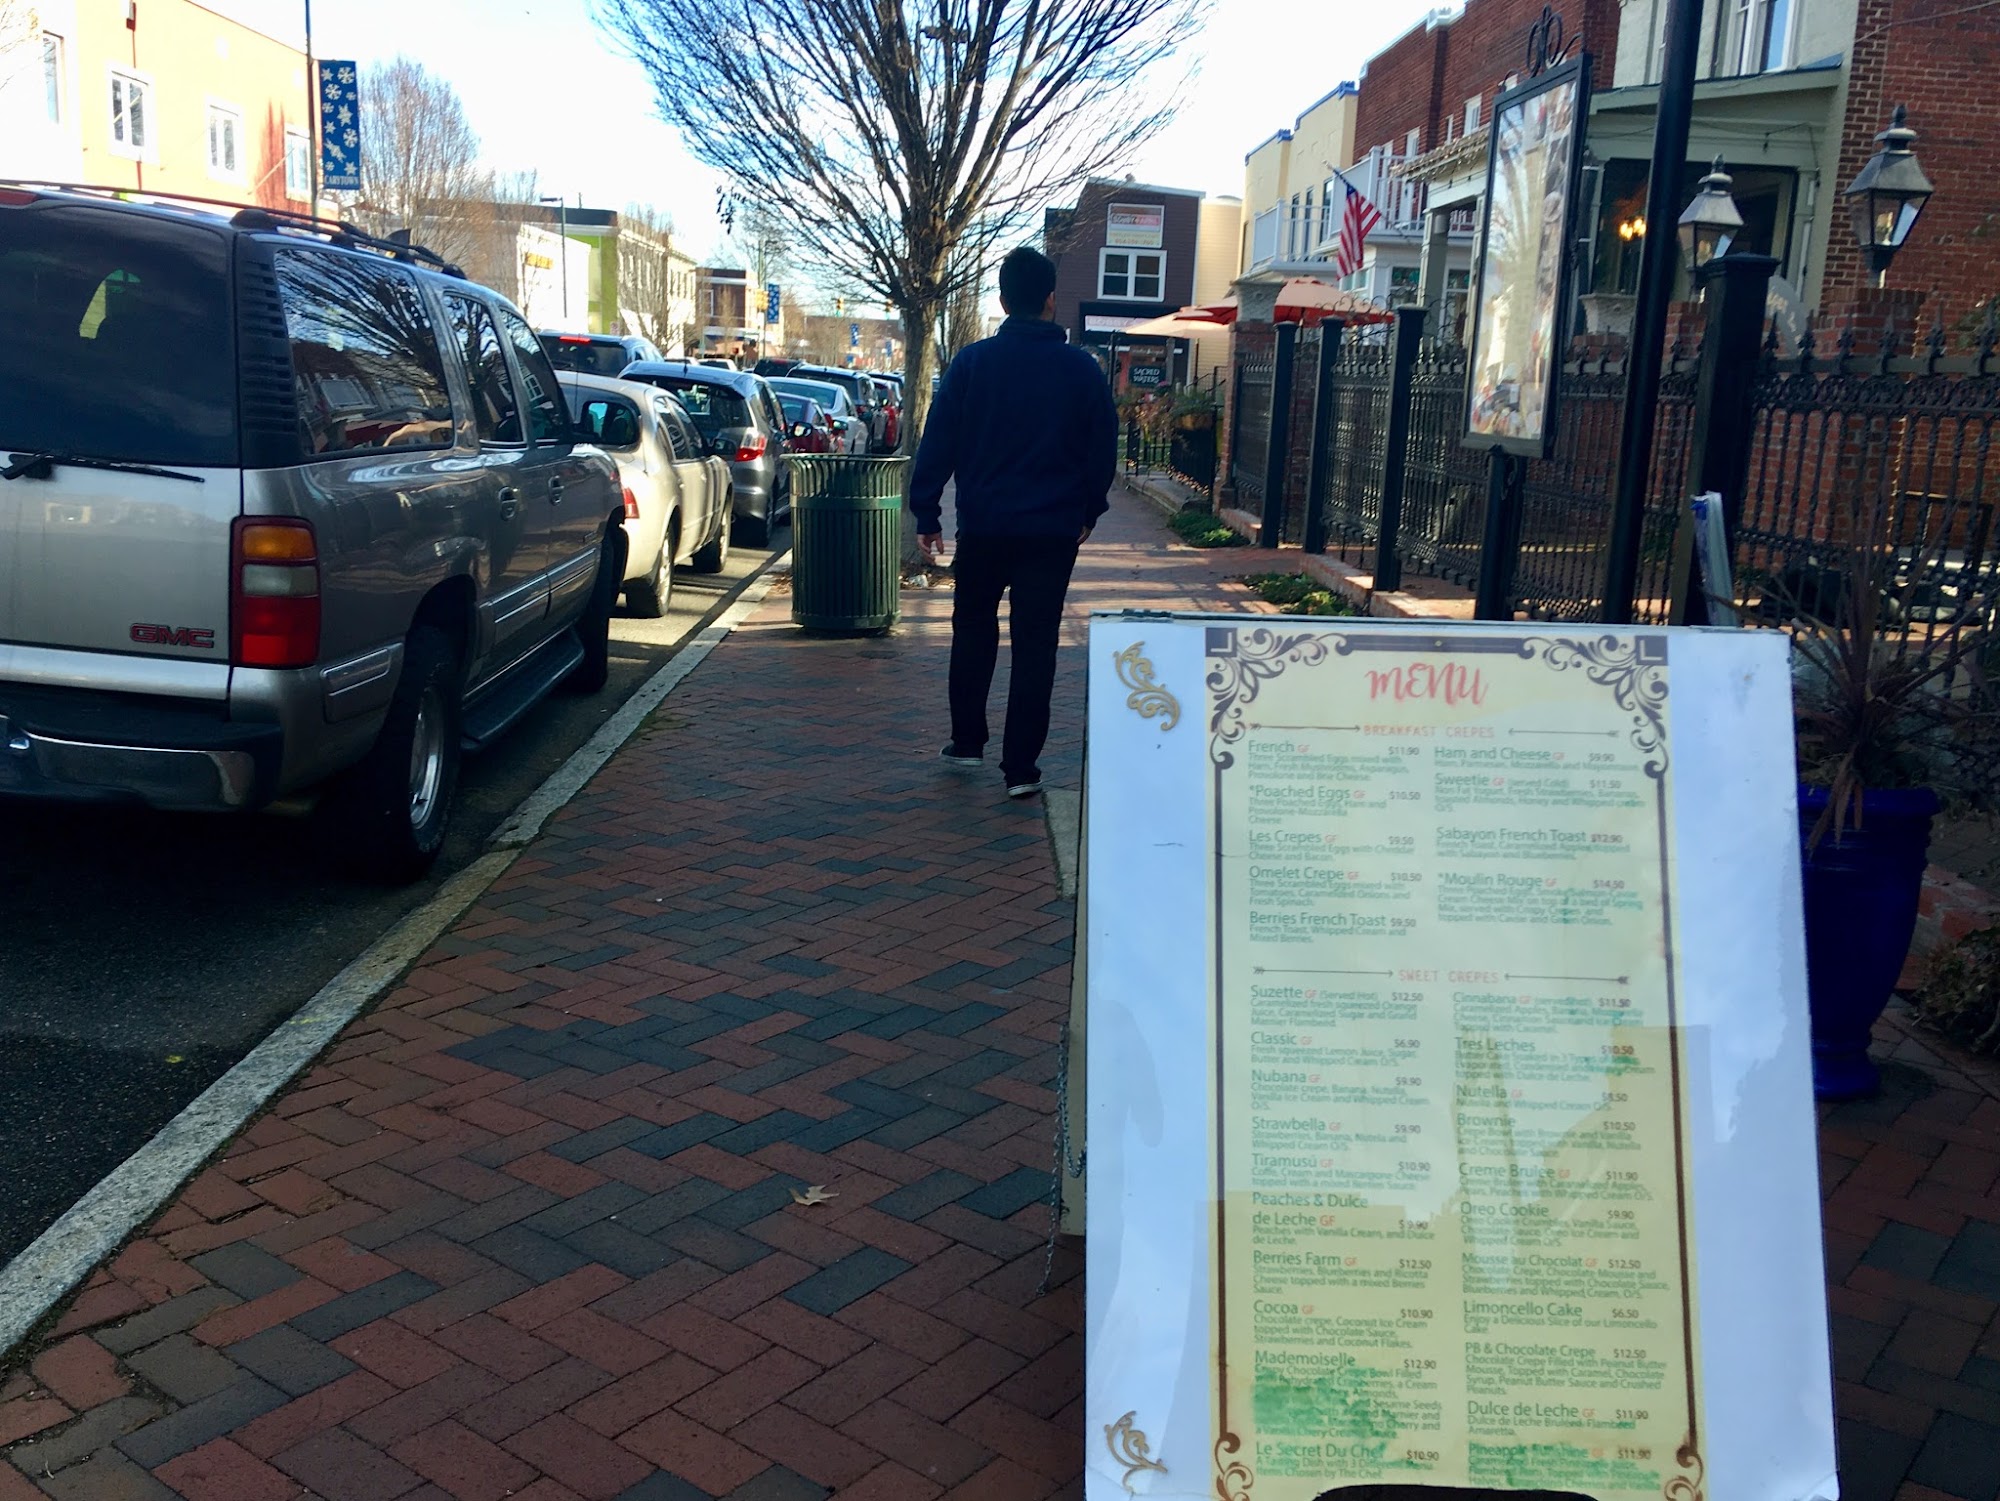 CARYTOWN
GMC
SACRED
WATERS
MENU
BREAKFAST CREPES
French GF $11.90
Three Scrambled Eggs mixed with
Ham, Fresh Mushrooms, Asparagus,
Provolone and Brie Cheese.
*Poached Eggs GF $10.50
Three Poached Eggs, Ham and
Provolone-Mozzarella
Cheese
Les Crepes GF $9.50
Three Scrambled Eggs with Cheddar
Cheese and Bacon.
Omelet Crepe GF $10.50
Three Scrambled Eggs mixed with
Tomatoes, Caramelized Onions and
Fresh Spinach.
Berries French Toast $9.50
French Toast, Whipped Cream and
Mixed Berries.
Ham and Cheese GF $9.90
Ham, Parmesan, Mozzarella and
Sweetie GF (Served Cold) $11.50
Non Fat Yogurt, Fresh Strawberries, Bananas,
Toasted Almonds, Honey and Whipped cream
O/S.
Sabayon French Toast $12.90
French Toast, Caramelized Apples, topped
with Sabayon and Blueberries.
*Moulin Rouge GF $14.50
Three Poached Eggs, Smoked Salmon Caviar
Cream Cheese Mix on top of a bed of Spring
Mix, served with Crispy Crepes, and
topped with Caviar and Green Onion.
SWEET CREPES
Suzette GF (Served Hot) $12.50
Caramelized fresh squeezed Orange
Juice, Caramelized Sugar and Grand
Marnier Flambeed.
Classic GF $6.90
Fresh squeezed Lemon Juice, Sugar,
Butter and Whipped Cream O/S.
Nubana GF $9.90
Chocolate crepe, Banana, Nutella,
Vanilla Ice Cream and Whipped Cream
O/S.
Strawbella GF $9.90
Strawberries, Banana, Nutella and
Whipped Cream O/S.
Tiramusú GF $10.90
Coffe, Cream and Mascarpone Cheese
topped with a mixed Berries Sauce.
Peaches & Dulce
de Leche GF $9.90
Peaches with Vanilla Cream, and Dulce
de Leche.
Berries Farm GF $12.50
Strawberries, Blueberries and Ricotta
Cheese topped with a mixed Berries
Sauce.
Cocoa GF $10.90
Chocolate crepe, Coconut Ice Cream
topped with Chocolate Sauce,
Strawberries and Coconut Flakes.
Mademoiselle $12.90
Crispy Chocolate Crepe Bowl Filled
Dehydrated Cranberries, a Cream
Almonds,
Sesame Seeds
Marnier and
Cherry and
a Vanilla Chery Creamy Sauce.
Le Secret Du Chef $10.90
A Tasting Dish with 3 Different
Items Chosen by The Chef.
Cinnabana GF (served hot) $11.50
Caramelized Apples, Banana,
Topped with Caramel.
Tres Leches $10.50
Butter Cake Soaked in 3 Types of
Evaporated, Condensed and Heavy Cream
topped with Dulce de Leche.
Nutella GF $8.50
Nutella and Whipped Cream O/S.
Brownie $10.50
Crepe Bowl with Brownie and Vanilla
Ice Cream topped with Vanilla, Nutella
and Chocolate Sauce
Creme Brulee GF $11.90
Creme Brulee with Caramelized Apples,
Pears, Peaches with Whipped Cream O/S.
Oreo Cookie $9.90
Oreo Cookie Crumbles, Vanilla Sauce,
Chocolate Sauce, Oreo Ice Cream and
Whipped Cream O/S.
Mousse au Chocolat GF $12.50
Chocolate Crepe, Chocolate Mousse and
Strawberries topped with Chocolate Sauce,
Blueberries and Whipped Cream, O/S.
Limoncello Cake $6.50
Enjoy a Delicious Slice of our Limoncello
Cake.
PB & Chocolate Crepe $12.50
Chocolate Crepe Filled with Peanut Butter
Mousse, Topped with Caramel, Chocolate
Syrup, Peanut Butter Sauce and Crushed
Peanuts.
Dulce de Leche GF $11.90
Dulce de Leche Bruleed, Flambeed
Amaretto.
Pineapple Sunshine GF $11.90
Caramelized Fresh Pineapple